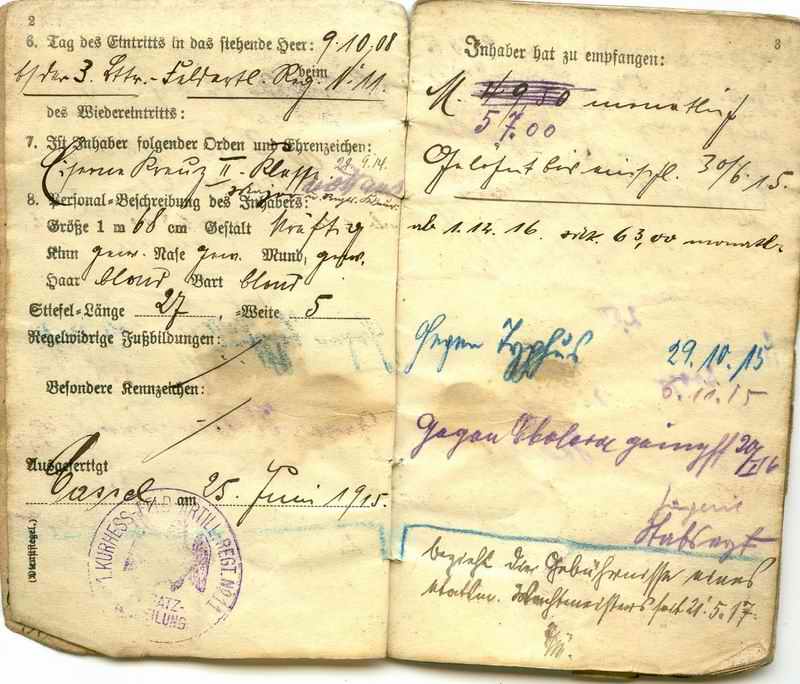 2
6. Tag des Eintritts in das stehende Heer: 9.10.08
b/der 3. Bttr.-Feldartl. Reg. Nr. 11.
beim
des Wiedereintritts:
7. Ist Inhaber folgender Orden und Ehrenzeichen:
Eiserne Kreuz II. Klasse 22.9.14.
8. Personal-Beschreibung des Inhabers:
Größe 1 m 68 cm Gestalt kräftig
Kinn gew. Nase gew. Mund, gew.
Haar blond Bart blond
Stiefel-Länge 27, -Weite 5
Regelwidrige Fußbildungen:
Besondere Kennzeichen:
Ausgefertigt
Cassel am 25. Juni 1915.
(Dienstsiegel.)
1. KURHESS. FELDARTILL. REGT. No. 11
ERSATZ-
ABTEILUNG
3
Inhaber hat zu empfangen:
M. 49,50 monatlich
57.00
Gelöhnt bis einschl. 30/6.15.
ab 1.12.16. 63,00 monatl.
Gegen Typhus 29.10.15
6.11.15
Gegen Cholera geimpft
Stabsarzt
bezieht die Gebührnisse eines
etatm. Wachtmeisters seit 21.5.17.